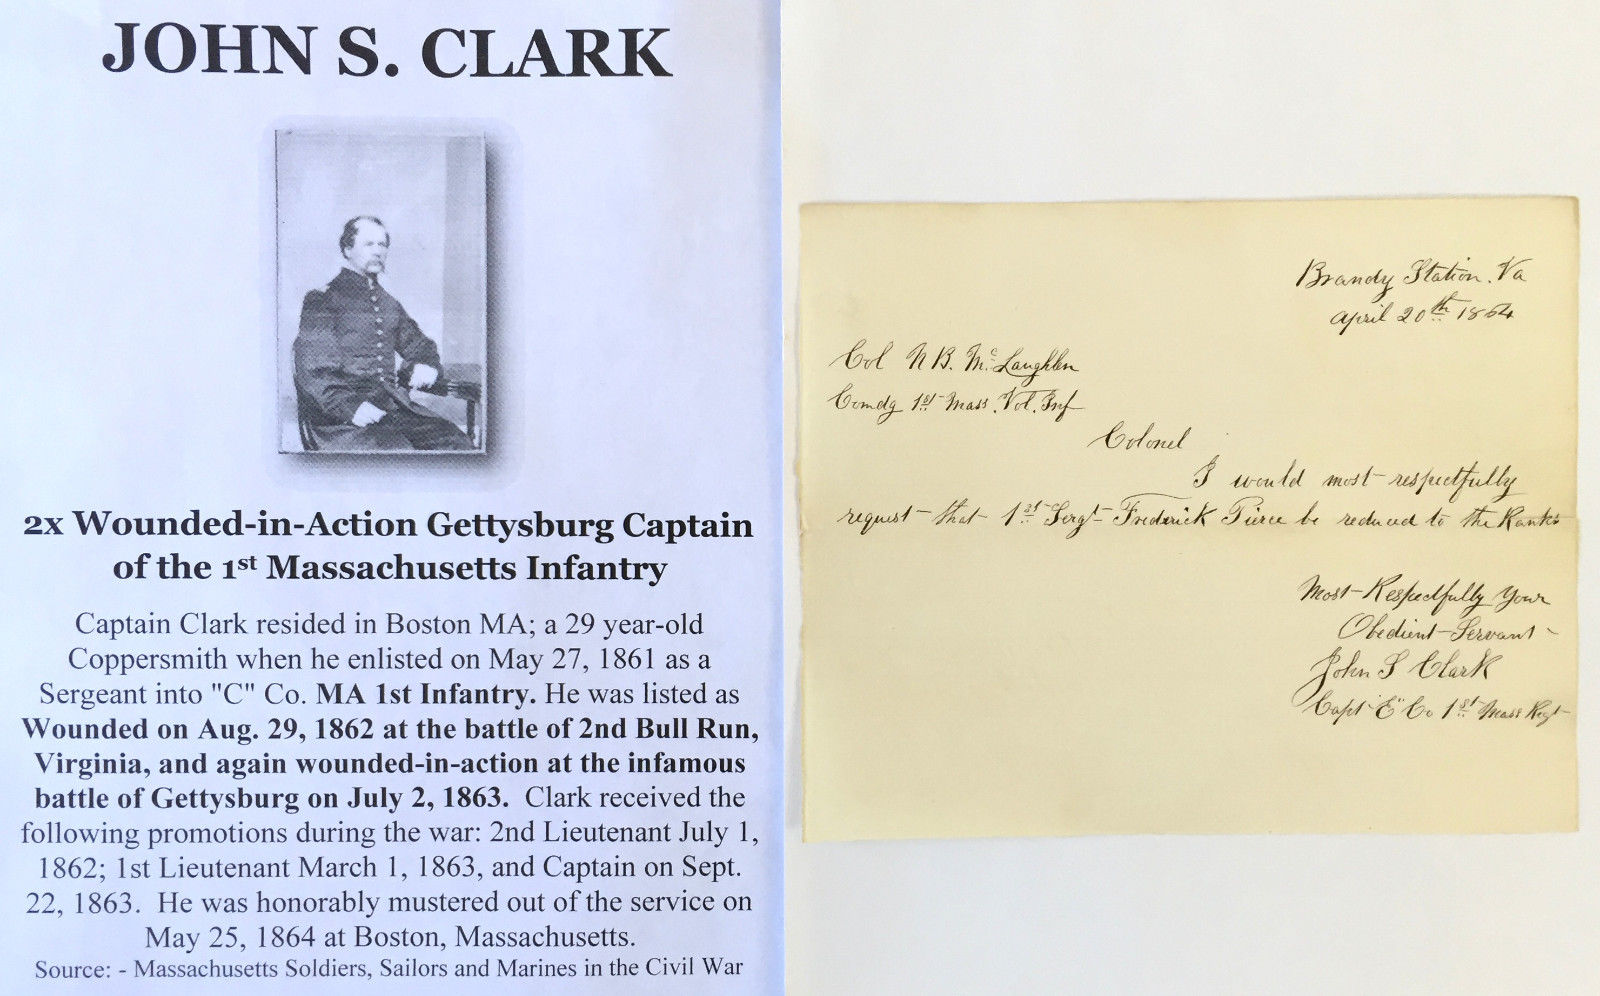 JOHN S. CLARK
2x Wounded-in-Action Gettysburg Captain
of the 1st Massachusetts Infantry
Captain Clark resided in Boston MA; a 29 year-old
Coppersmith when he enlisted on May 27, 1861 as a
Sergeant into "C" Co. MA 1st Infantry. He was listed as
Wounded on Aug. 29, 1862 at the battle of 2nd Bull Run,
Virginia, and again wounded-in-action at the infamous
battle of Gettysburg on July 2, 1863. Clark received the
following promotions during the war: 2nd Lieutenant July 1,
1862; 1st Lieutenant March 1, 1863, and Captain on Sept.
22, 1863. He was honorably mustered out of the service on
May 25, 1864 at Boston, Massachusetts.
Source: - Massachusetts Soldiers, Sailors and Marines in the Civil War
Brandy Station. Va
April 20th 1864
Col N B. McLaughlen
Comdg 1st Mass. Vol. Inf
Colonel
I would most respectfully
request that 1st Sergt Frederick Pierce be reduced to the Ranks
Most Respectfully Your
Obedient Servant
John S Clark
Capt "E" Co 1st Mass Regt